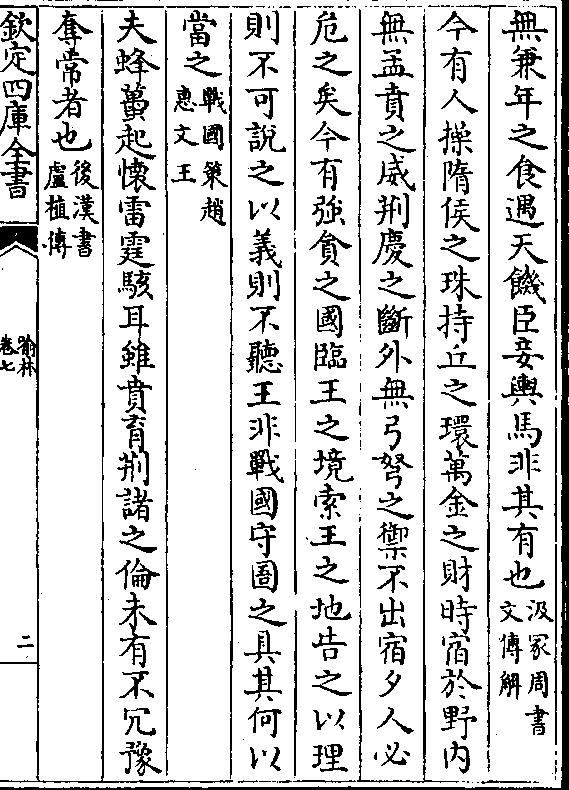 無兼年之食遇天饑臣妾輿馬非其有也汲冢周書文傳解
今有人操隋侯之珠持丘之環萬金之財時宿於野内
無孟賁之威荆慶之斷外無弓弩之禦不出宿夕人必
危之矣今有強貪之國臨王之境索王之地告之以理
則不可說之以義則不聽王非戰國守圄之具其何以
當之戰國策趙惠文王
夫蜂蠆起懷雷霆駭耳雖賁育荆諸之倫未有不冗豫
奪常者也後漢書盧植傳
欽定四庫全書
喻林
卷七
二